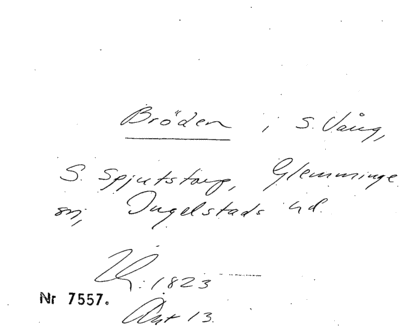 Bröden, i S. Vång,
S. Spjutstorp, Glemminge
sn, Ingelstads hd.
1823
Nr 7557.
Akt 13.